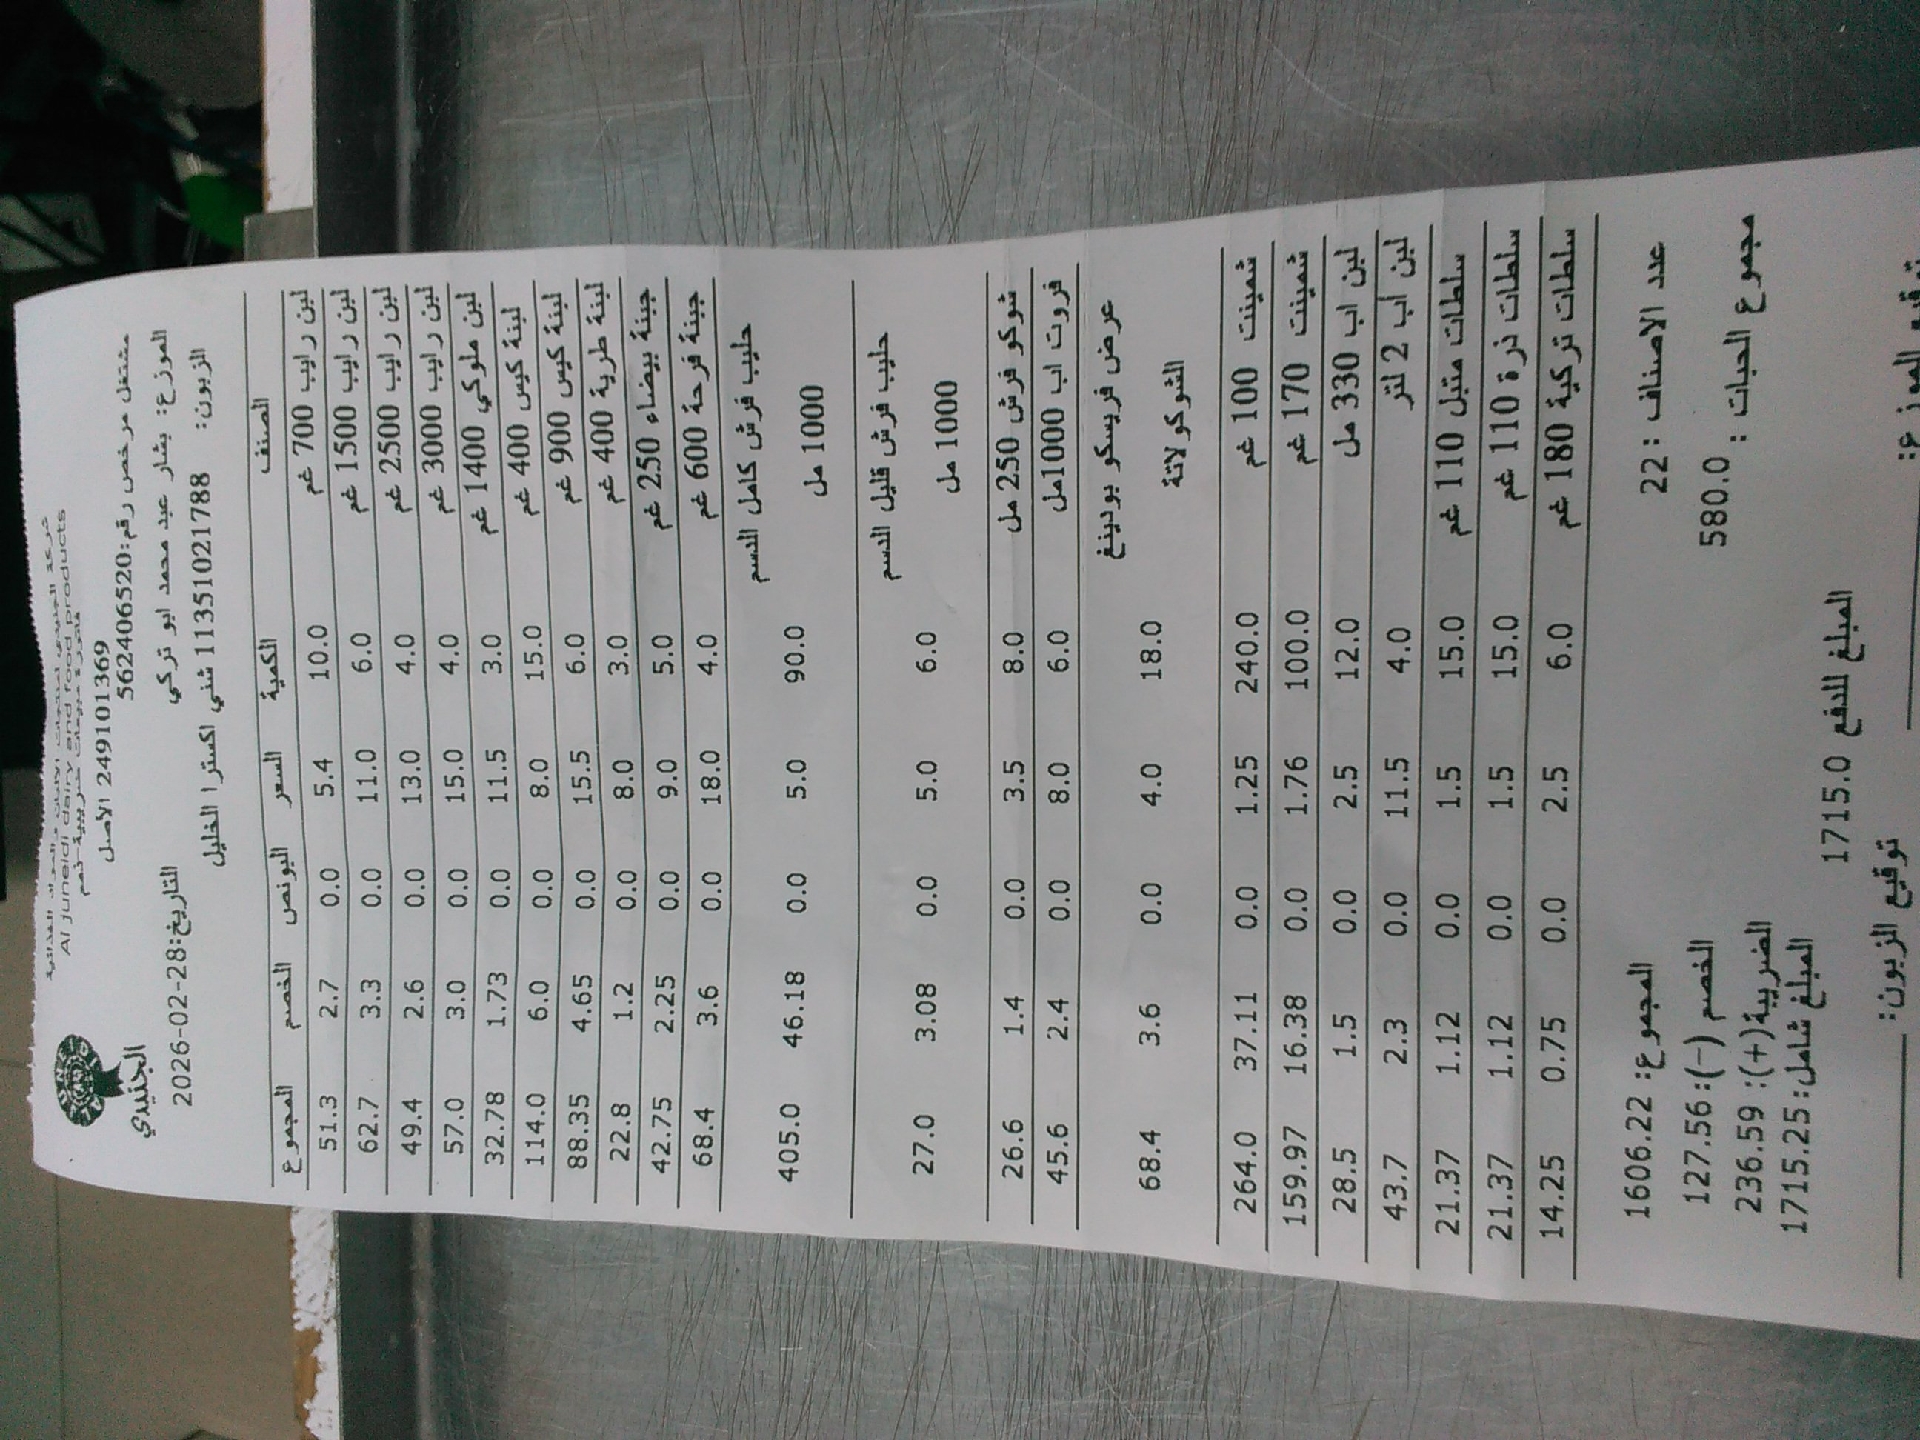 شركة الجنيدي لمنتجات الألبان والمواد الغذائية
Al juneidi dairy and food products
الجنيدي
249101369 الاصل
مشتغل مرخص رقم:562406520
التاريخ:2026-02-28
الموزع: بشار عبد محمد ابو تركي
الزبون: 11351021788 شني اكسترا الخليل
الصنف الكمية السعر البونص الخصم المجموع
لبن رايب 700 غم 10.0 5.4 0.0 2.7 51.3
لبن رايب 1500 غم 6.0 11.0 0.0 3.3 62.7
لبن رايب 2500 غم 4.0 13.0 0.0 2.6 49.4
لبن رايب 3000 غم 4.0 15.0 0.0 3.0 57.0
لبن ملوكي 1400 غم 3.0 11.5 0.0 1.73 32.78
لبنة كيس 400 غم 15.0 8.0 0.0 6.0 114.0
لبنة كيس 900 غم 6.0 15.5 0.0 4.65 88.35
لبنة طرية 400 غم 3.0 8.0 0.0 1.2 22.8
جبنة بيضاء 250 غم 5.0 9.0 0.0 2.25 42.75
جبنة فرحة 600 غم 4.0 18.0 0.0 3.6 68.4
حليب فرش كامل الدسم
1000 مل 90.0 5.0 0.0 46.18 405.0
حليب فرش قليل الدسم
1000 مل 6.0 5.0 0.0 3.08 27.0
شوكو فرش 250 مل 8.0 3.5 0.0 1.4 26.6
فروت اب 1000مل 6.0 8.0 0.0 2.4 45.6
عرض فريسكو بودينغ
الشوكولاتة 18.0 4.0 0.0 3.6 68.4
شمينت 100 غم 240.0 1.25 0.0 37.11 264.0
شمينت 170 غم 100.0 1.76 0.0 16.38 159.97
لبن اب 330 مل 12.0 2.5 0.0 1.5 28.5
لبن اب 2 لتر 4.0 11.5 0.0 2.3 43.7
سلطات متبل 110 غم 15.0 1.5 0.0 1.12 21.37
سلطات ذرة 110 غم 15.0 1.5 0.0 1.12 21.37
سلطات تركية 180 غم 6.0 2.5 0.0 0.75 14.25
عدد الاصناف : 22 المجموع: 1606.22
مجموع الحبات : 580.0 الخصم (-): 127.56
الضريبة(+): 236.59
المبلغ شامل: 1715.25
المبلغ للدفع 1715.0
توقيع الموزع: توقيع الزبون: